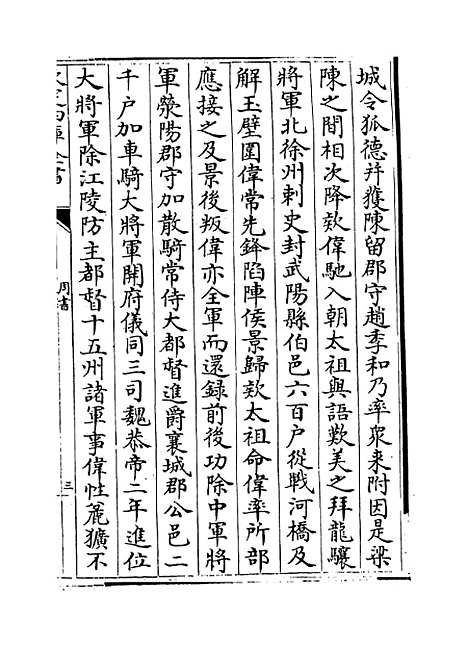 城令狐德并獲陳留郡守趙季和乃率衆来附因是梁
陳之間相次降欵偉馳入朝太祖與語歎美之拜龍驤
將軍北徐州刺史封武陽縣伯邑六百户從戰河橋及
解玉壁圍偉常先鋒陷陣侯景歸欵太祖命偉率所部
應接之及景後叛偉亦全軍而還録前後功除中軍將
軍滎陽郡守加散騎常侍大都督進爵襄城郡公邑二
千户加車騎大將軍開府儀同三司魏恭帝二年進位
大將軍除江陵防主都督十五州諸軍事偉性麄獷不
周書
三